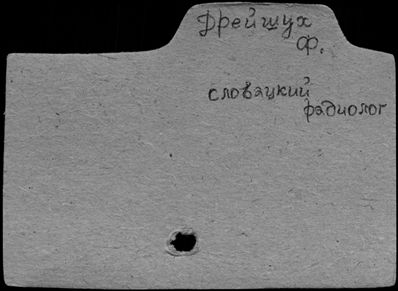 Дрейшух
Ф.
словацкий
радиолог